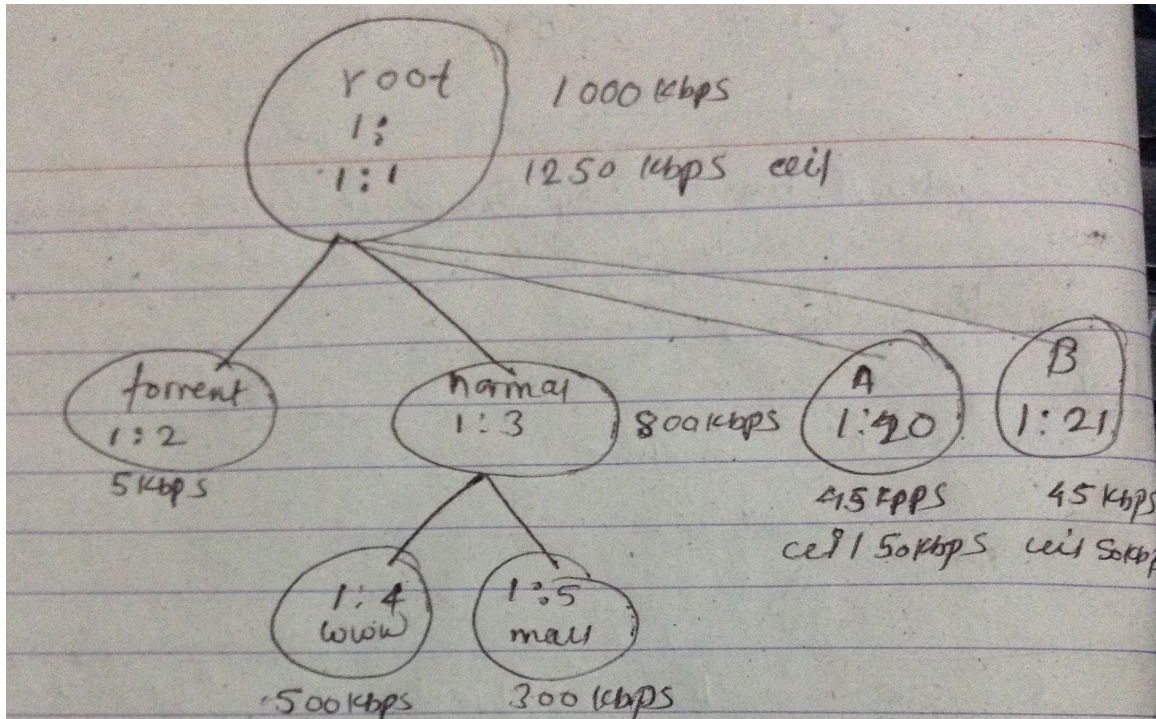 root
1:
1:1
1000 Kbps
1250 Kbps ceil
torrent
1:2
5 Kbps
normal
1:3
800 Kbps
A
1:20
45 Kpps
ceil 50 Kbps
B
1:21
45 Kbps
ceil 50 Kbp
1:4
www
500 Kbps
1:5
mail
300 Kbps